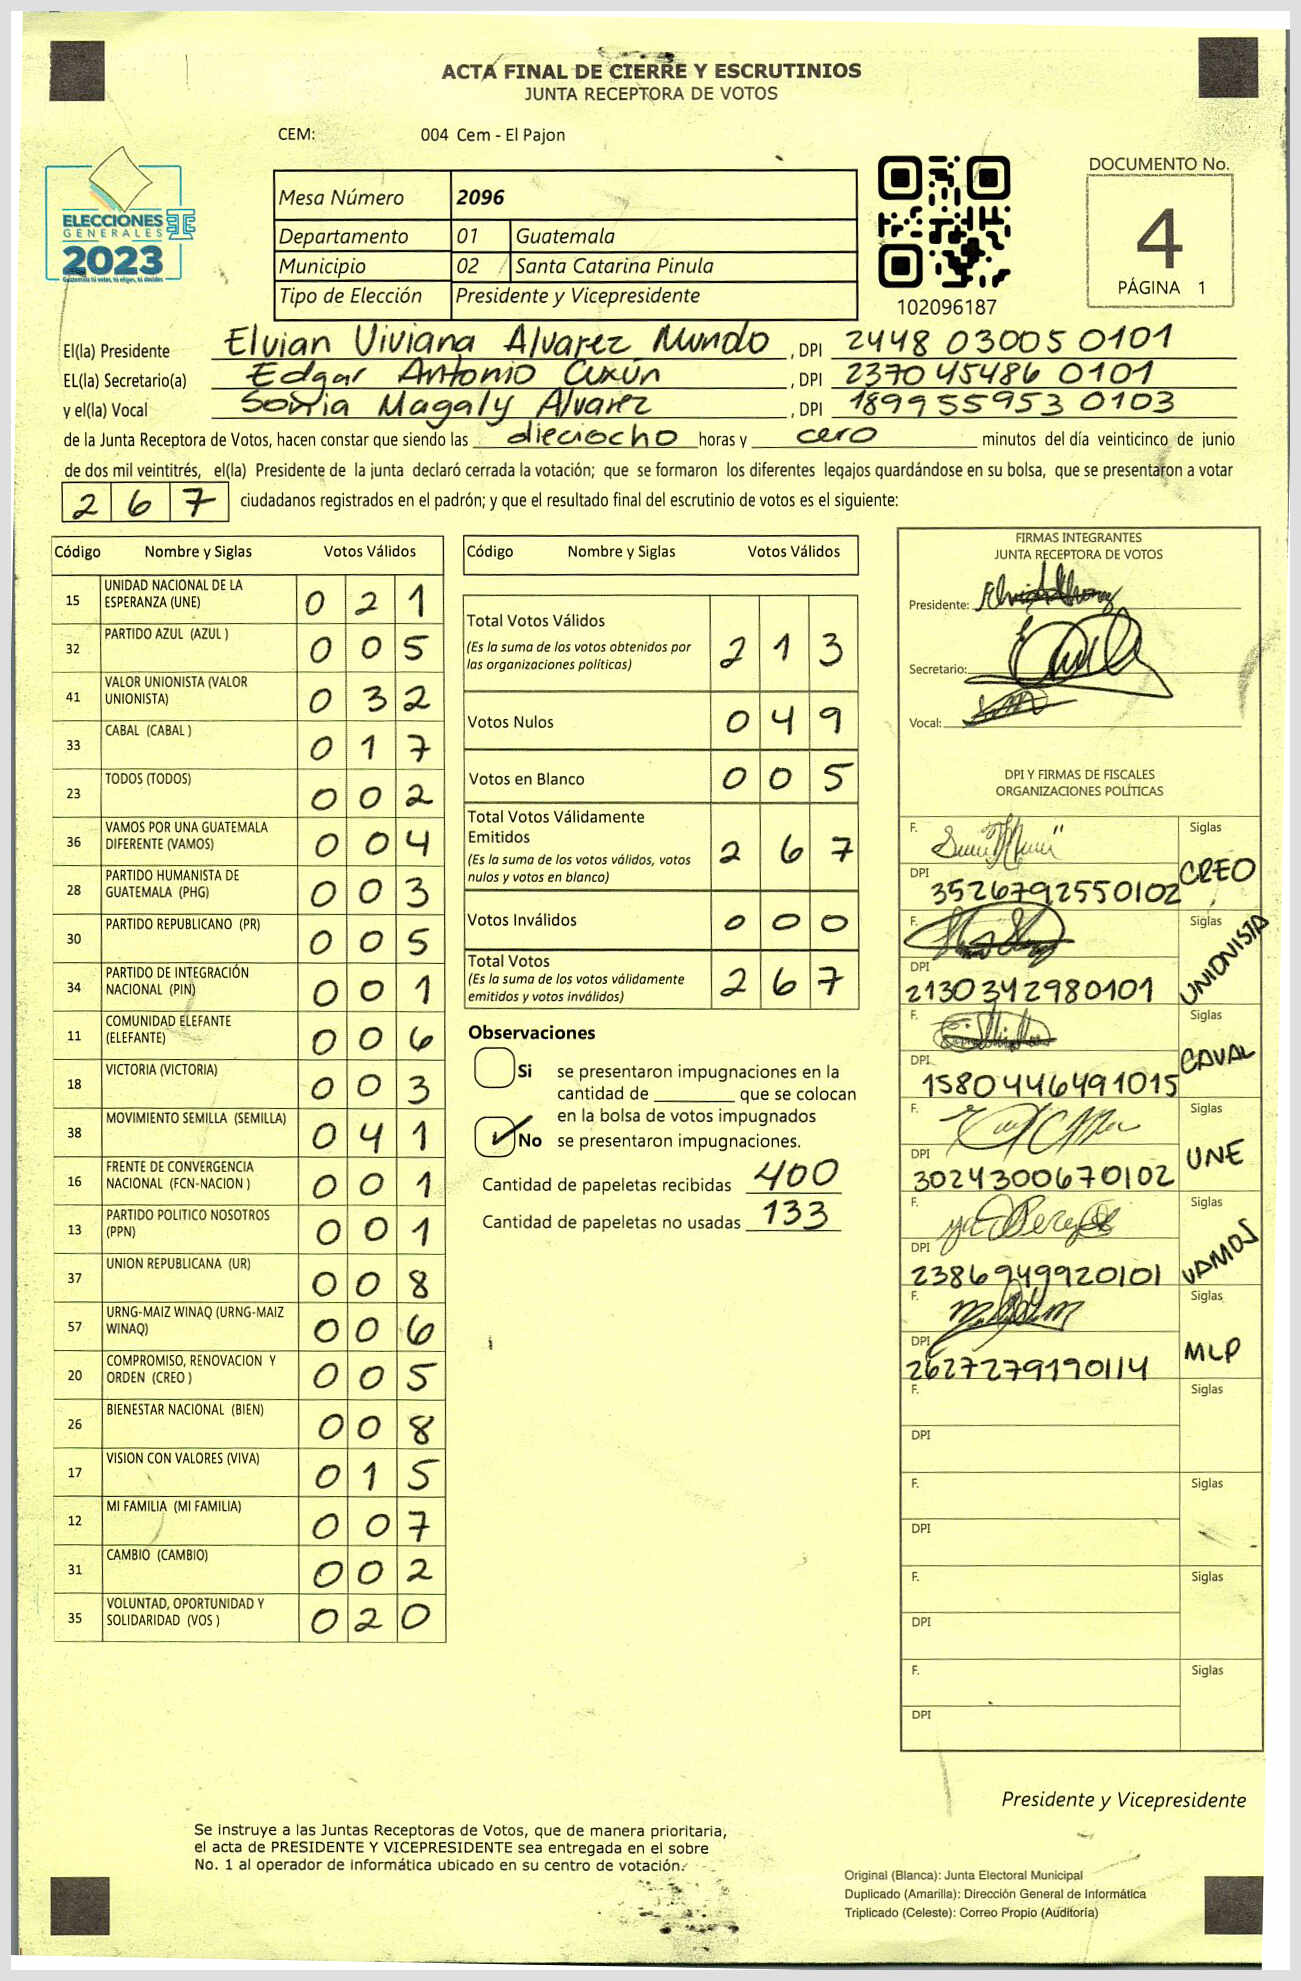 ACTA FINAL DE CIERRE Y ESCRUTINIOS
JUNTA RECEPTORA DE VOTOS
CEM: 004 Cem - El Pajon
ELECCIONES
GENERALES
2023
Guatemala tú votas, tú eliges, tú decides
Mesa Número 2096
Departamento 01 Guatemala
Municipio 02 Santa Catarina Pinula
Tipo de Elección Presidente y Vicepresidente
102096187
DOCUMENTO No.
4
PÁGINA 1
El(la) Presidente Elvian Viviana Alvarez Mundo , DPI 2448 03005 0101
EL(la) Secretario(a) Edgar Antonio Cuxún , DPI 2370 45486 0101
y el(la) Vocal Sonia Magaly Alvarez , DPI 1899 55953 0103
de la Junta Receptora de Votos, hacen constar que siendo las dieciocho horas y cero minutos del día veinticinco de junio
de dos mil veintitrés, el(la) Presidente de la junta declaró cerrada la votación; que se formaron los diferentes legajos guardándose en su bolsa, que se presentaron a votar
267 ciudadanos registrados en el padrón; y que el resultado final del escrutinio de votos es el siguiente:
Código Nombre y Siglas Votos Válidos
15 UNIDAD NACIONAL DE LA ESPERANZA (UNE) 0 2 1
32 PARTIDO AZUL (AZUL ) 0 0 5
41 VALOR UNIONISTA (VALOR UNIONISTA) 0 3 2
33 CABAL (CABAL ) 0 1 7
23 TODOS (TODOS) 0 0 2
36 VAMOS POR UNA GUATEMALA DIFERENTE (VAMOS) 0 0 4
28 PARTIDO HUMANISTA DE GUATEMALA (PHG) 0 0 3
30 PARTIDO REPUBLICANO (PR) 0 0 5
34 PARTIDO DE INTEGRACIÓN NACIONAL (PIN) 0 0 1
11 COMUNIDAD ELEFANTE (ELEFANTE) 0 0 6
18 VICTORIA (VICTORIA) 0 0 3
38 MOVIMIENTO SEMILLA (SEMILLA) 0 4 1
16 FRENTE DE CONVERGENCIA NACIONAL (FCN-NACION ) 0 0 1
13 PARTIDO POLITICO NOSOTROS (PPN) 0 0 1
37 UNION REPUBLICANA (UR) 0 0 8
57 URNG-MAIZ WINAQ (URNG-MAIZ WINAQ) 0 0 6
20 COMPROMISO, RENOVACION Y ORDEN (CREO ) 0 0 5
26 BIENESTAR NACIONAL (BIEN) 0 0 8
17 VISION CON VALORES (VIVA) 0 1 5
12 MI FAMILIA (MI FAMILIA) 0 0 7
31 CAMBIO (CAMBIO) 0 0 2
35 VOLUNTAD, OPORTUNIDAD Y SOLIDARIDAD (VOS ) 0 2 0
Código Nombre y Siglas Votos Válidos
Total Votos Válidos 2 1 3
(Es la suma de los votos obtenidos por
las organizaciones políticas)
Votos Nulos 0 4 9
Votos en Blanco 0 0 5
Total Votos Válidamente
Emitidos 2 6 7
(Es la suma de los votos válidos, votos
nulos y votos en blanco)
Votos Inválidos 0 0 0
Total Votos 2 6 7
(Es la suma de los votos válidamente
emitidos y votos inválidos)
Observaciones
Si se presentaron impugnaciones en la
cantidad de ________ que se colocan
en la bolsa de votos impugnados
No se presentaron impugnaciones.
Cantidad de papeletas recibidas 400
Cantidad de papeletas no usadas 133
FIRMAS INTEGRANTES
JUNTA RECEPTORA DE VOTOS
Presidente:
Secretario:
Vocal:
DPI Y FIRMAS DE FISCALES
ORGANIZACIONES POLÍTICAS
F. Siglas
DPI 3526792550102 CREO
F. Siglas
DPI 2130342980101 UNIONISTA
F. Siglas
DPI 1580446491015 CAVAL
F. Siglas
DPI 3024300670102 UNE
F. Siglas
DPI 2386949920101 VAMOS
F. Siglas
DPI 2627279190114 MLP
F. Siglas
DPI
F. Siglas
DPI
F. Siglas
DPI
F. Siglas
DPI
Presidente y Vicepresidente
Se instruye a las Juntas Receptoras de Votos, que de manera prioritaria,
el acta de PRESIDENTE Y VICEPRESIDENTE sea entregada en el sobre
No. 1 al operador de informática ubicado en su centro de votación.
Original (Blanca): Junta Electoral Municipal
Duplicado (Amarilla): Dirección General de Informática
Triplicado (Celeste): Correo Propio (Auditoría)